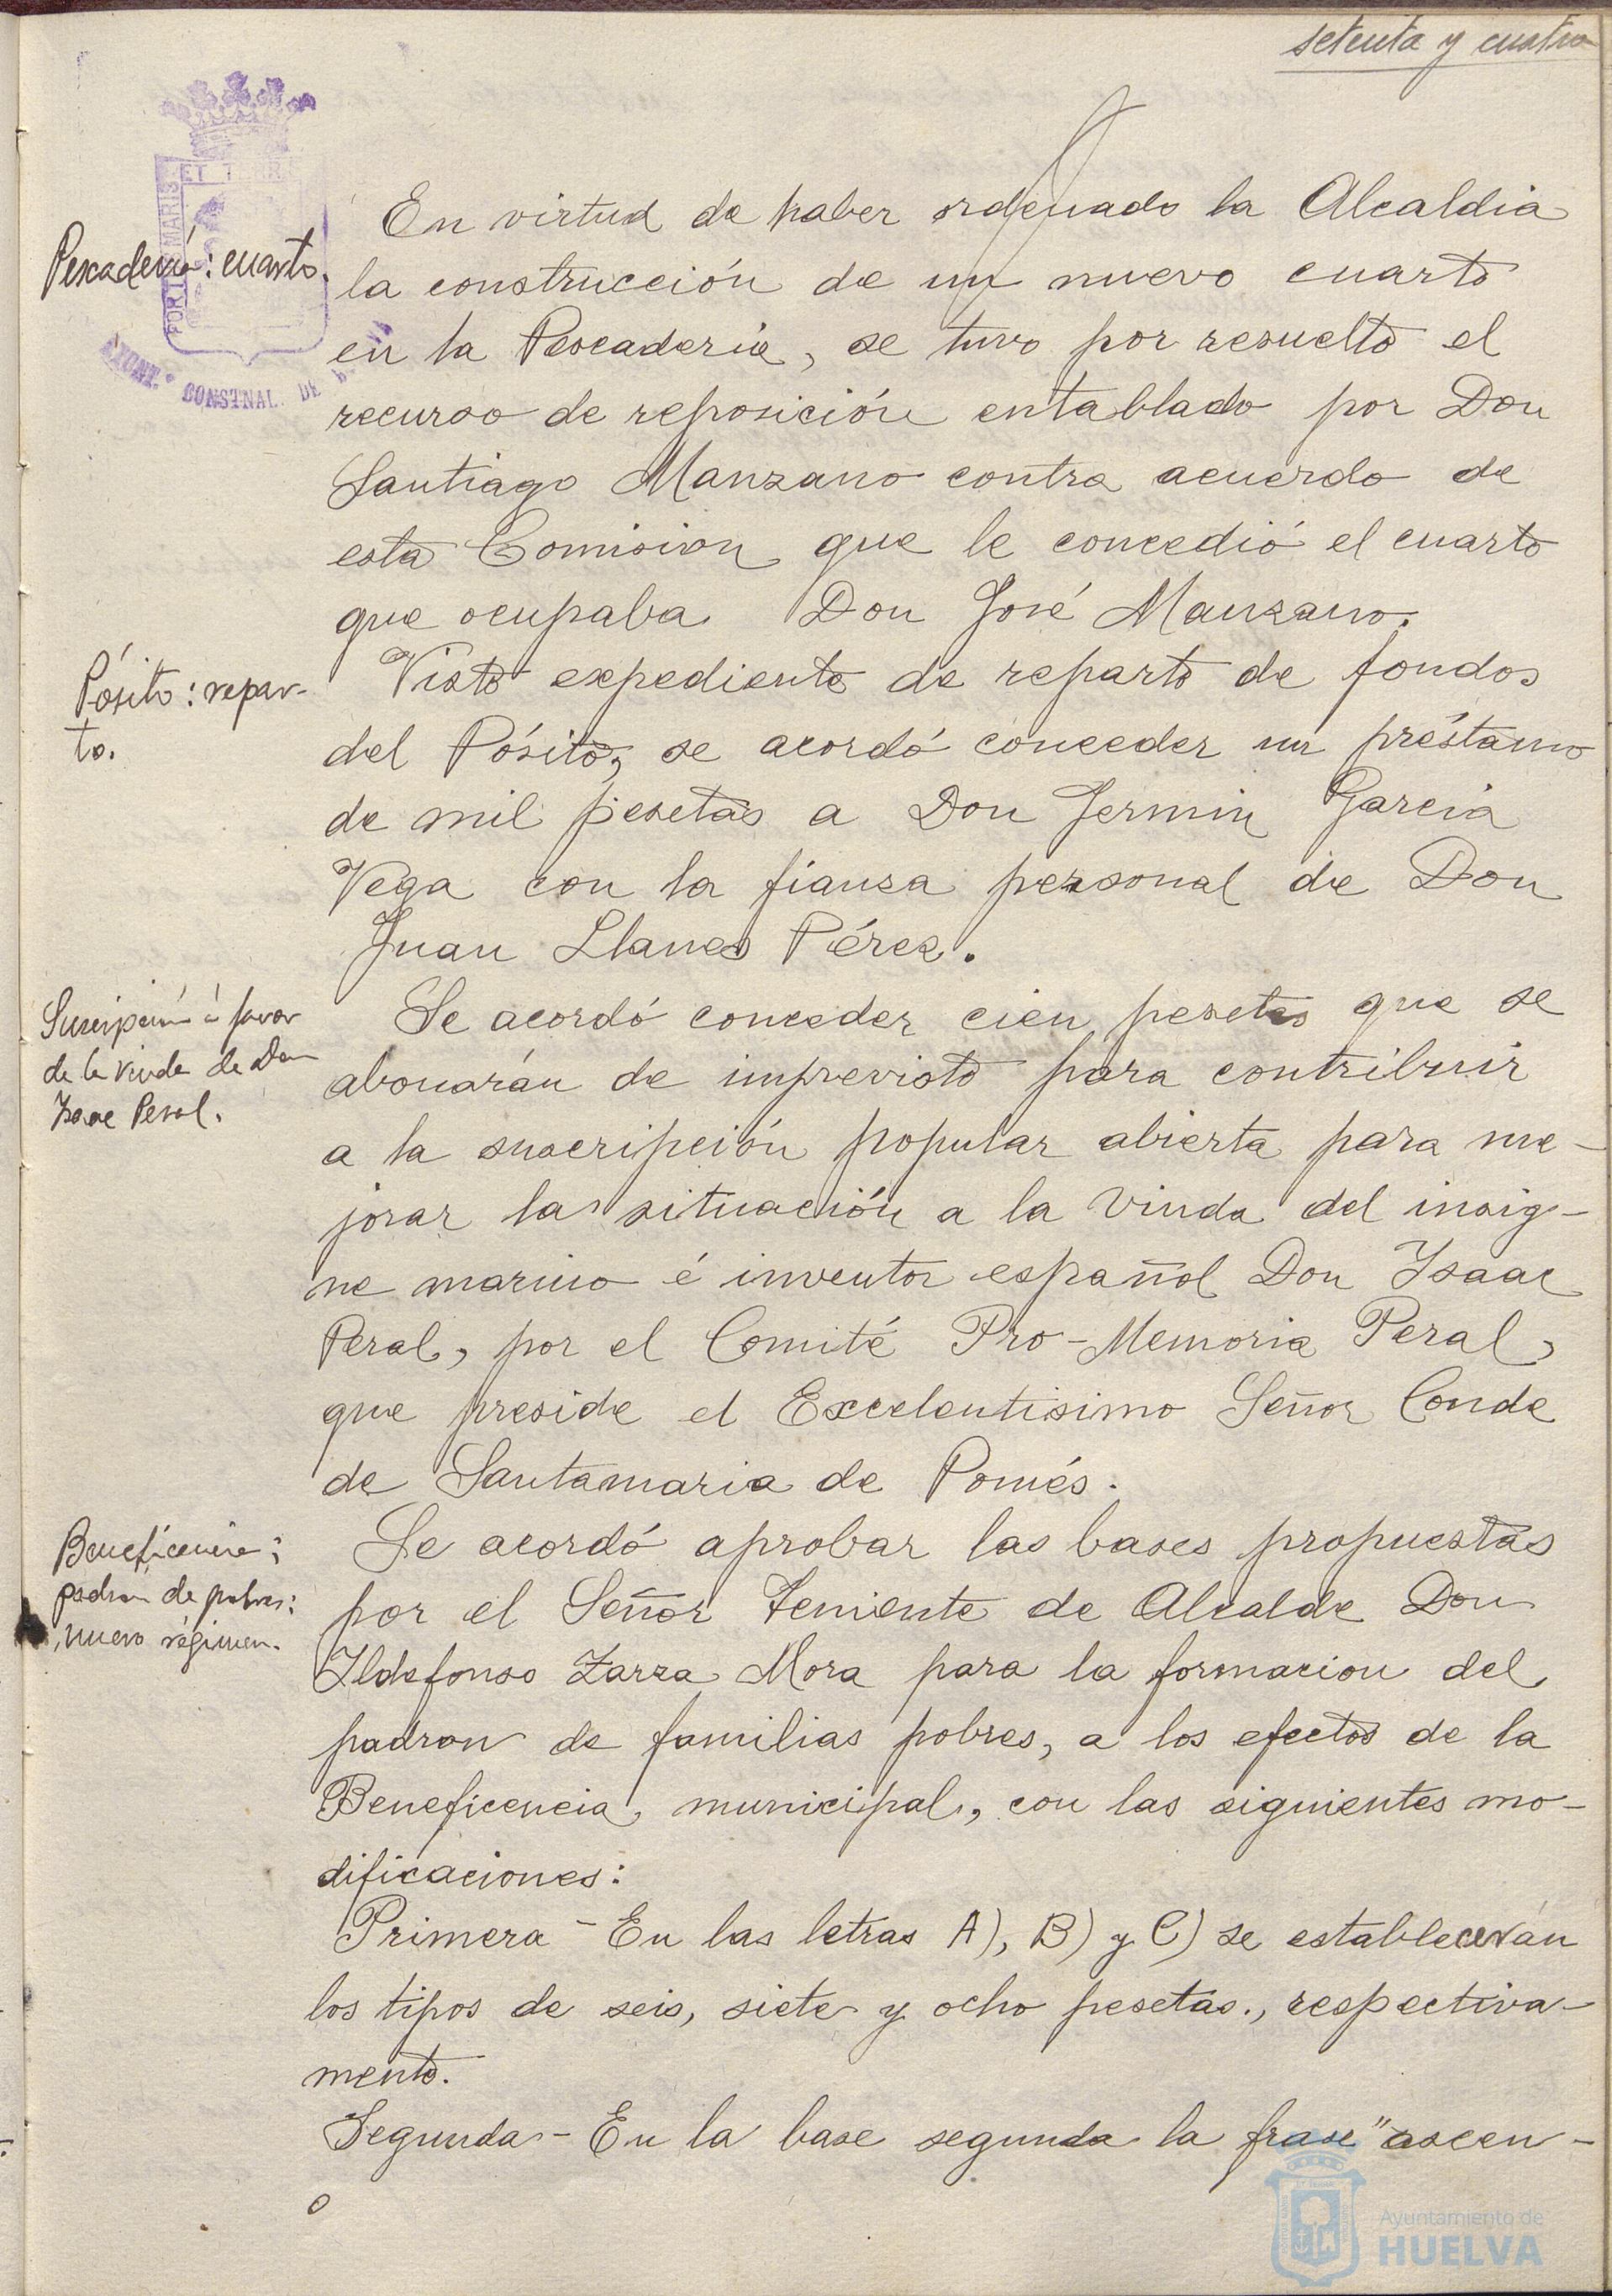 setenta y cuatro
ET TERRE
PORTUS MARIS
AYUNT.º CONSTNAL. DE
Pescadería: cuarto.
En virtud de haber ordenado la Alcaldia
la construcción de un nuevo cuarto
en la Pescadería, se tuvo por resuelto el
recurso de reposición entablado por Don
Santiago Manzano contra acuerdo de
esta Comision que le concedió el cuarto
que ocupaba Don José Manzano.
Pósito: repar-
to.
Visto expediente de reparto de fondos
del Pósito, se acordó conceder un préstamo
de mil pesetas a Don Fermin Garcia
Vega con la fianza personal de Don
Juan Llanes Pérez.
Suscripción á favor
de la viuda de Don
Isaac Peral.
Se acordó conceder cien pesetas que se
abonarán de imprevisto para contribuir
a la suscripción popular abierta para me-
jorar la situación a la viuda del insig-
ne marino é inventor español Don Isaac
Peral, por el Comité Pro-Memoria Peral,
que preside el Excelentisimo Señor Conde
de Santamaria de Pomés.
Beneficencia:
padron de pobres:
nuevo régimen.
Se acordó aprobar las bases propuestas
por el Señor Teniente de Alcalde Don
Ildefonso Zarza Mora para la formacion del
padron de familias pobres, a los efectos de la
Beneficencia municipal, con las siguientes mo-
dificaciones:
Primera - En las letras A), B) y C) se establecerán
los tipos de seis, siete y ocho pesetas., respectiva-
mente.
Segunda - En la base segunda la frase "ascen-
Ayuntamiento de
HUELVA